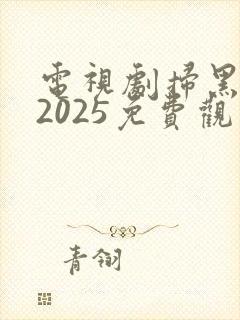 電視劇掃黑
2025免費觀
青翎